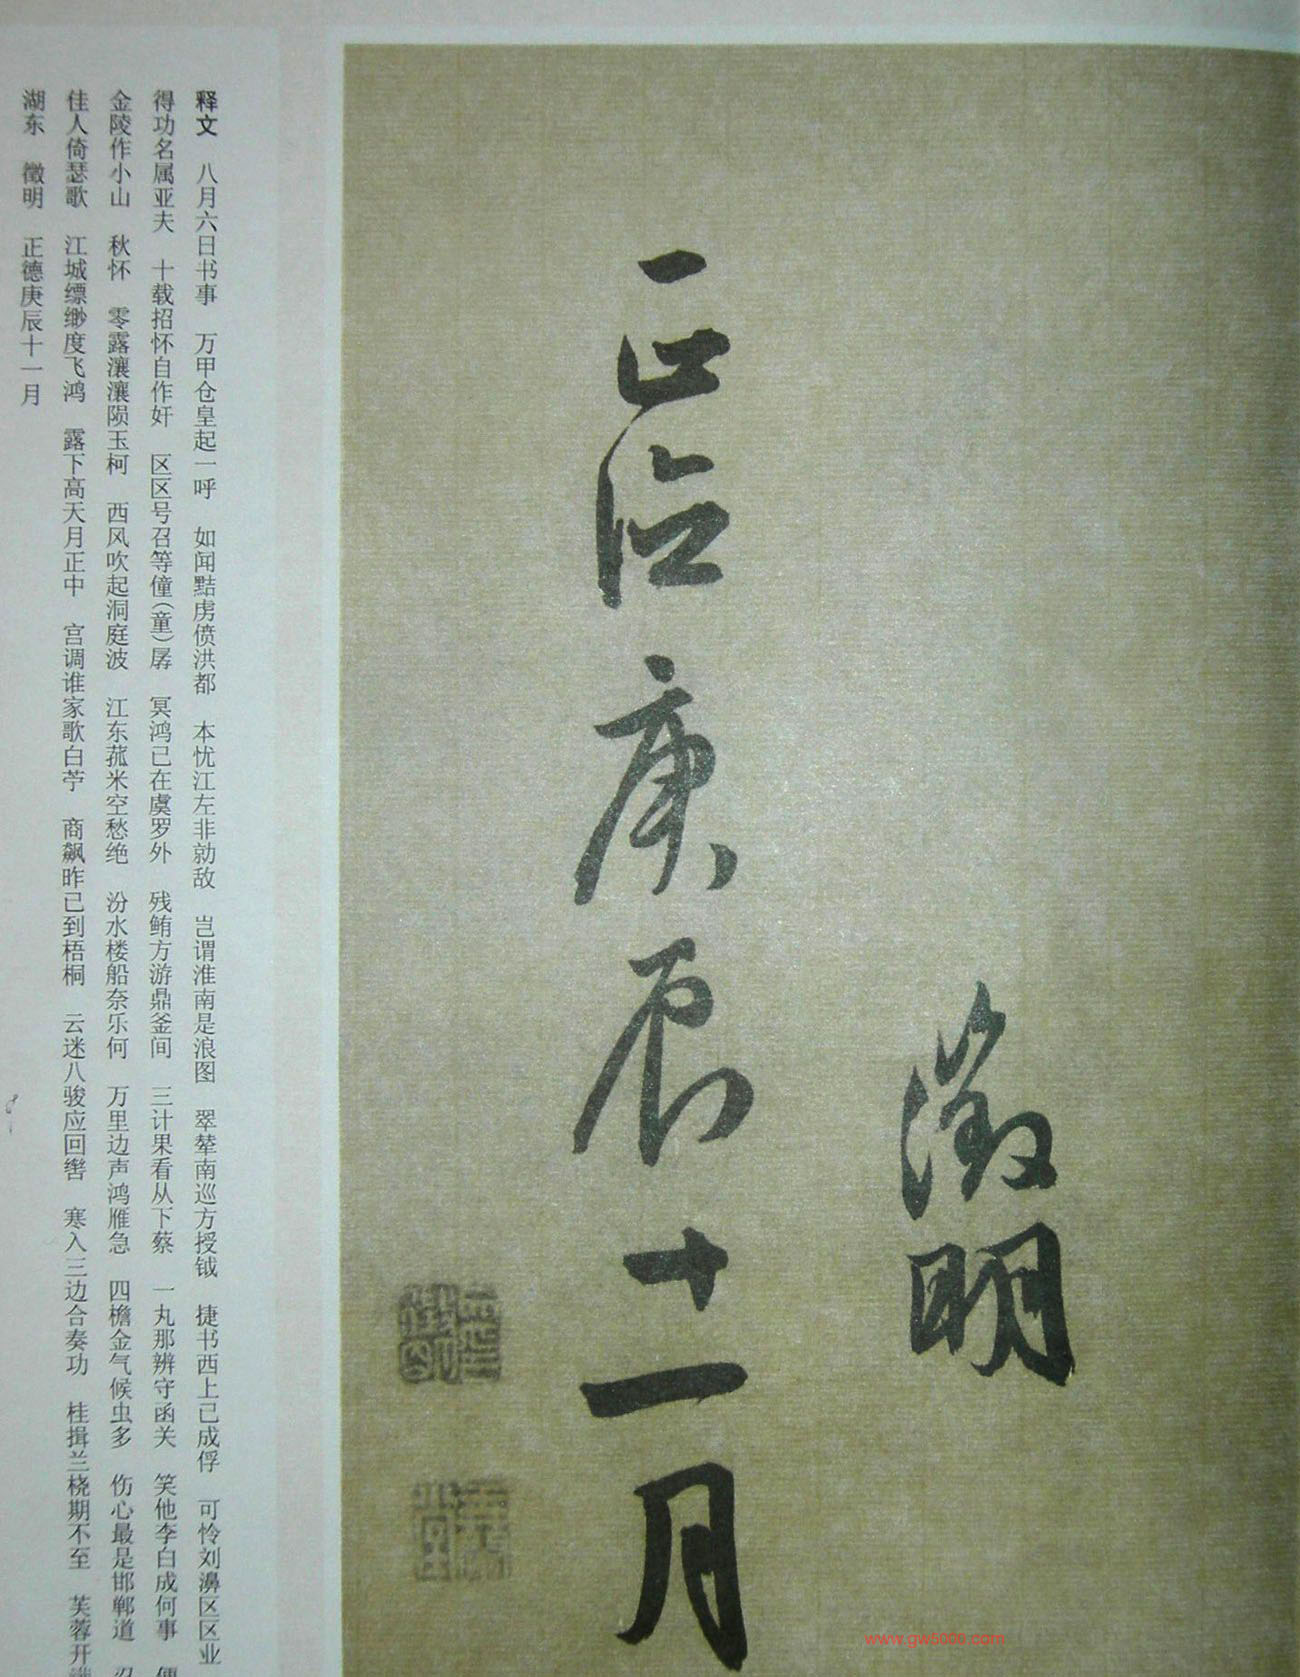 徵明
正德庚辰十一月
释文 八月六日书事 万甲仓皇起一呼 如闻黠虏偾洪都 本忧江左非勍敌 岂谓淮南是浪图 翠辇南巡方授钺 捷书西上已成俘 可怜刘濞区区业
得功名属亚夫 十载招怀自作奸 区区号召等僮（童）孱 冥鸿已在虞罗外 残鲔方游鼎釜间 三计果看从下蔡 一丸那辨守函关 笑他李白成何事 便
金陵作小山 秋怀 零露瀼瀼陨玉柯 西风吹起洞庭波 江东菰米空愁绝 汾水楼船奈乐何 万里边声鸿雁急 四檐金气候虫多 伤心最是邯郸道 忍
佳人倚瑟歌 江城缥缈度飞鸿 露下高天月正中 宫调谁家歌白苧 商飙昨已到梧桐 云迷八骏应回辔 寒入三边合奏功 桂揖兰桡期不至 芙蓉开
湖东 徵明 正德庚辰十一月
www.gw5000.com